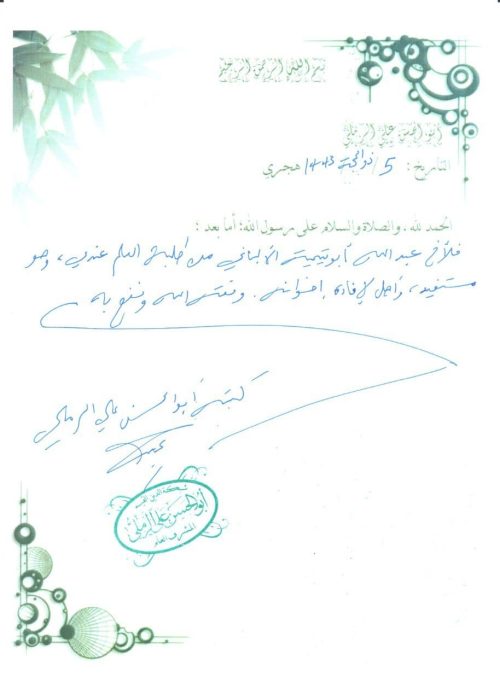 بسم الله الرحمن الرحيم
أبو الحسن علي الرملي
التاريخ : 5 / ذو الحجة / 1443 هجري
الحمد لله ، والصلاة والسلام على رسول الله؛ أما بعد :
فالأخ عبد الله أبو تيمية الألباني من طلبة العلم عندي ، وهو
مستفيد ، وأهل لإفادة إخوانه . وفقه الله ونفع به
كتبه أبو الحسن علي الرملي
شبكة الدين القيم
أبو الحسن علي الرملي
المشرف العام